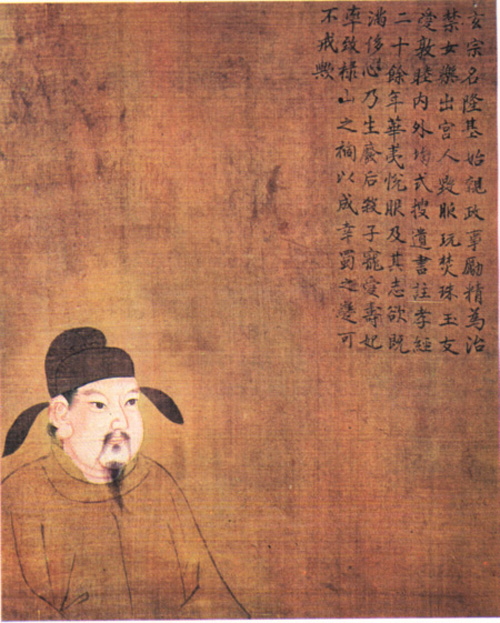 玄宗名隆基始聽政事勵精為治
禁女樂出宮人毀服玩焚珠玉友
愛敦睦內外均式搜遺書註孝經
二十餘年華夷悅服及其志欲既
滿侈心乃生廢后殺子寵愛壽妃
率致祿山之禍以成幸蜀之變可
不戒歟